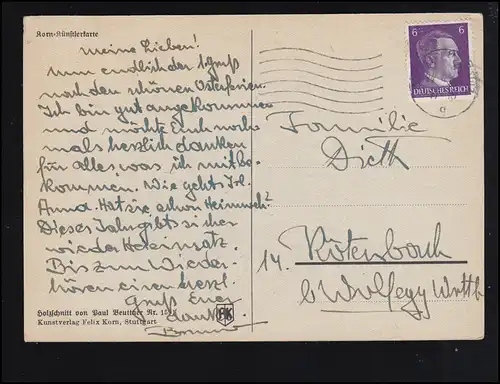 Korn-Künstlerkarte
Meine Lieben!
Nun endlich der 1. Gruß
nach den schönen Osterferien.
Ich bin gut angekommen
und möchte Euch noch-
mals herzlich danken
für alles, was ich mitbe-
kommen. Wie gehts Frl.
Anna. Hat sie schon Heimweh?
Dieses Jahr gibts sicher
wieder
Bis zum Wieder-
hören einen herzl.
Gruß Euer
dankb.
Holzschnitt von Paul Beuttner Nr.
Kunstverlag Felix Korn, Stuttgart
FK
6 6
DEUTSCHES REICH
Familie
Dieth
14. Rötenbach
b Wolfegg Württb